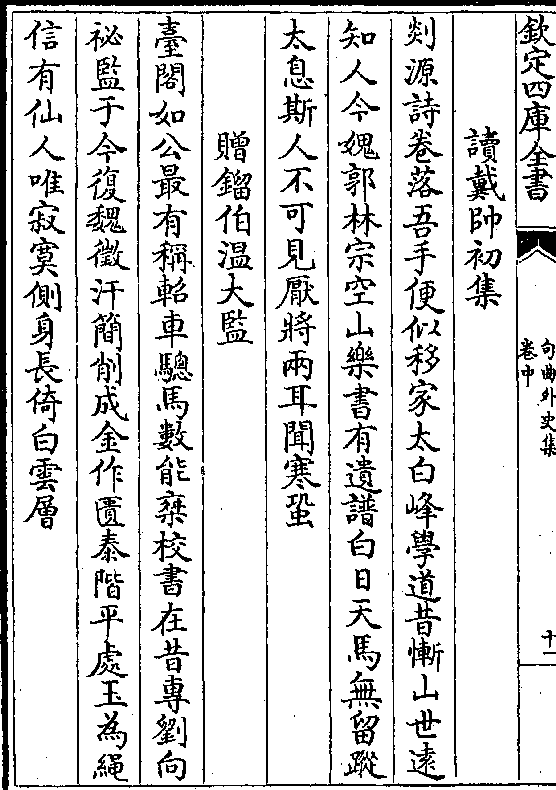 欽定四庫全書
句曲外史集
卷中
十一
讀戴帥初集
剡源詩卷落吾手便似移家太白峰學道昔慚山世遠
知人今媿郭林宗空山樂書有遺譜白日天馬無留蹤
太息斯人不可見厭將兩耳聞寒蛩
贈鎦伯温大監
臺閣如公最有稱軺車驄馬數能椉校書在昔專劉向
祕監于今復魏徵汗簡削成金作匱泰階平處玉為繩
信有仙人唯寂寞側身長倚白雲層